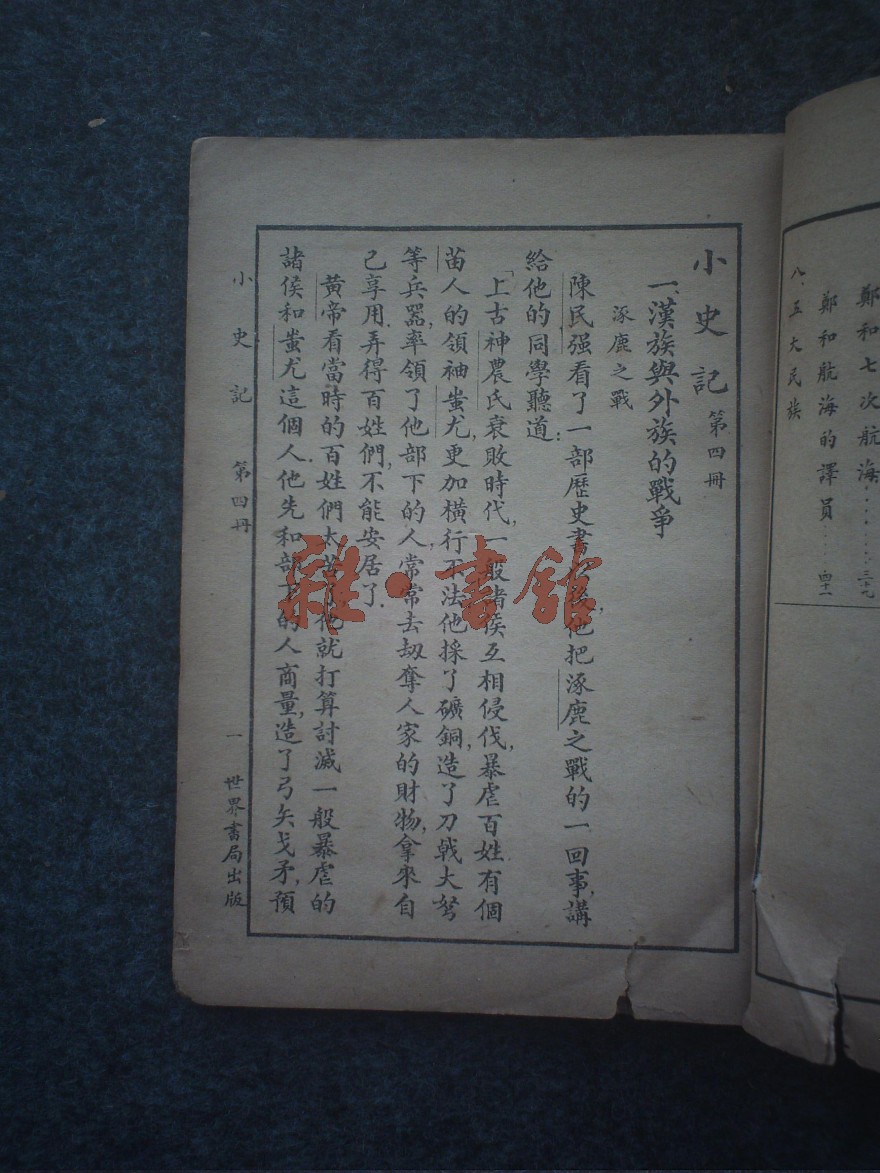 鄭和七次航海………三十九
鄭和航海的譯員……四十一
八、五大民族
小史記 第四冊
一、漢族與外族的戰爭
涿鹿之戰
陳民强看了一部歷史書後，他把涿鹿之戰的一回事，講
給他的同學聽道：
「上古神農氏衰敗時代，一般諸侯互相侵伐，暴虐百姓有個
苗人的領袖蚩尤，更加橫行不法他採了礦銅，造了刀戟大弩
等兵器，率領了他部下的人，常常去刼奪人家的財物，拿來自
己享用，弄得百姓們，不能安居了．
黃帝看當時的百姓們太苦了他就打算討滅一般暴虐的
諸侯和蚩尤這個人他先和部下的人商量，造了弓矢戈矛，預
小史記 第四冊 一 世界書局出版
雜·書館